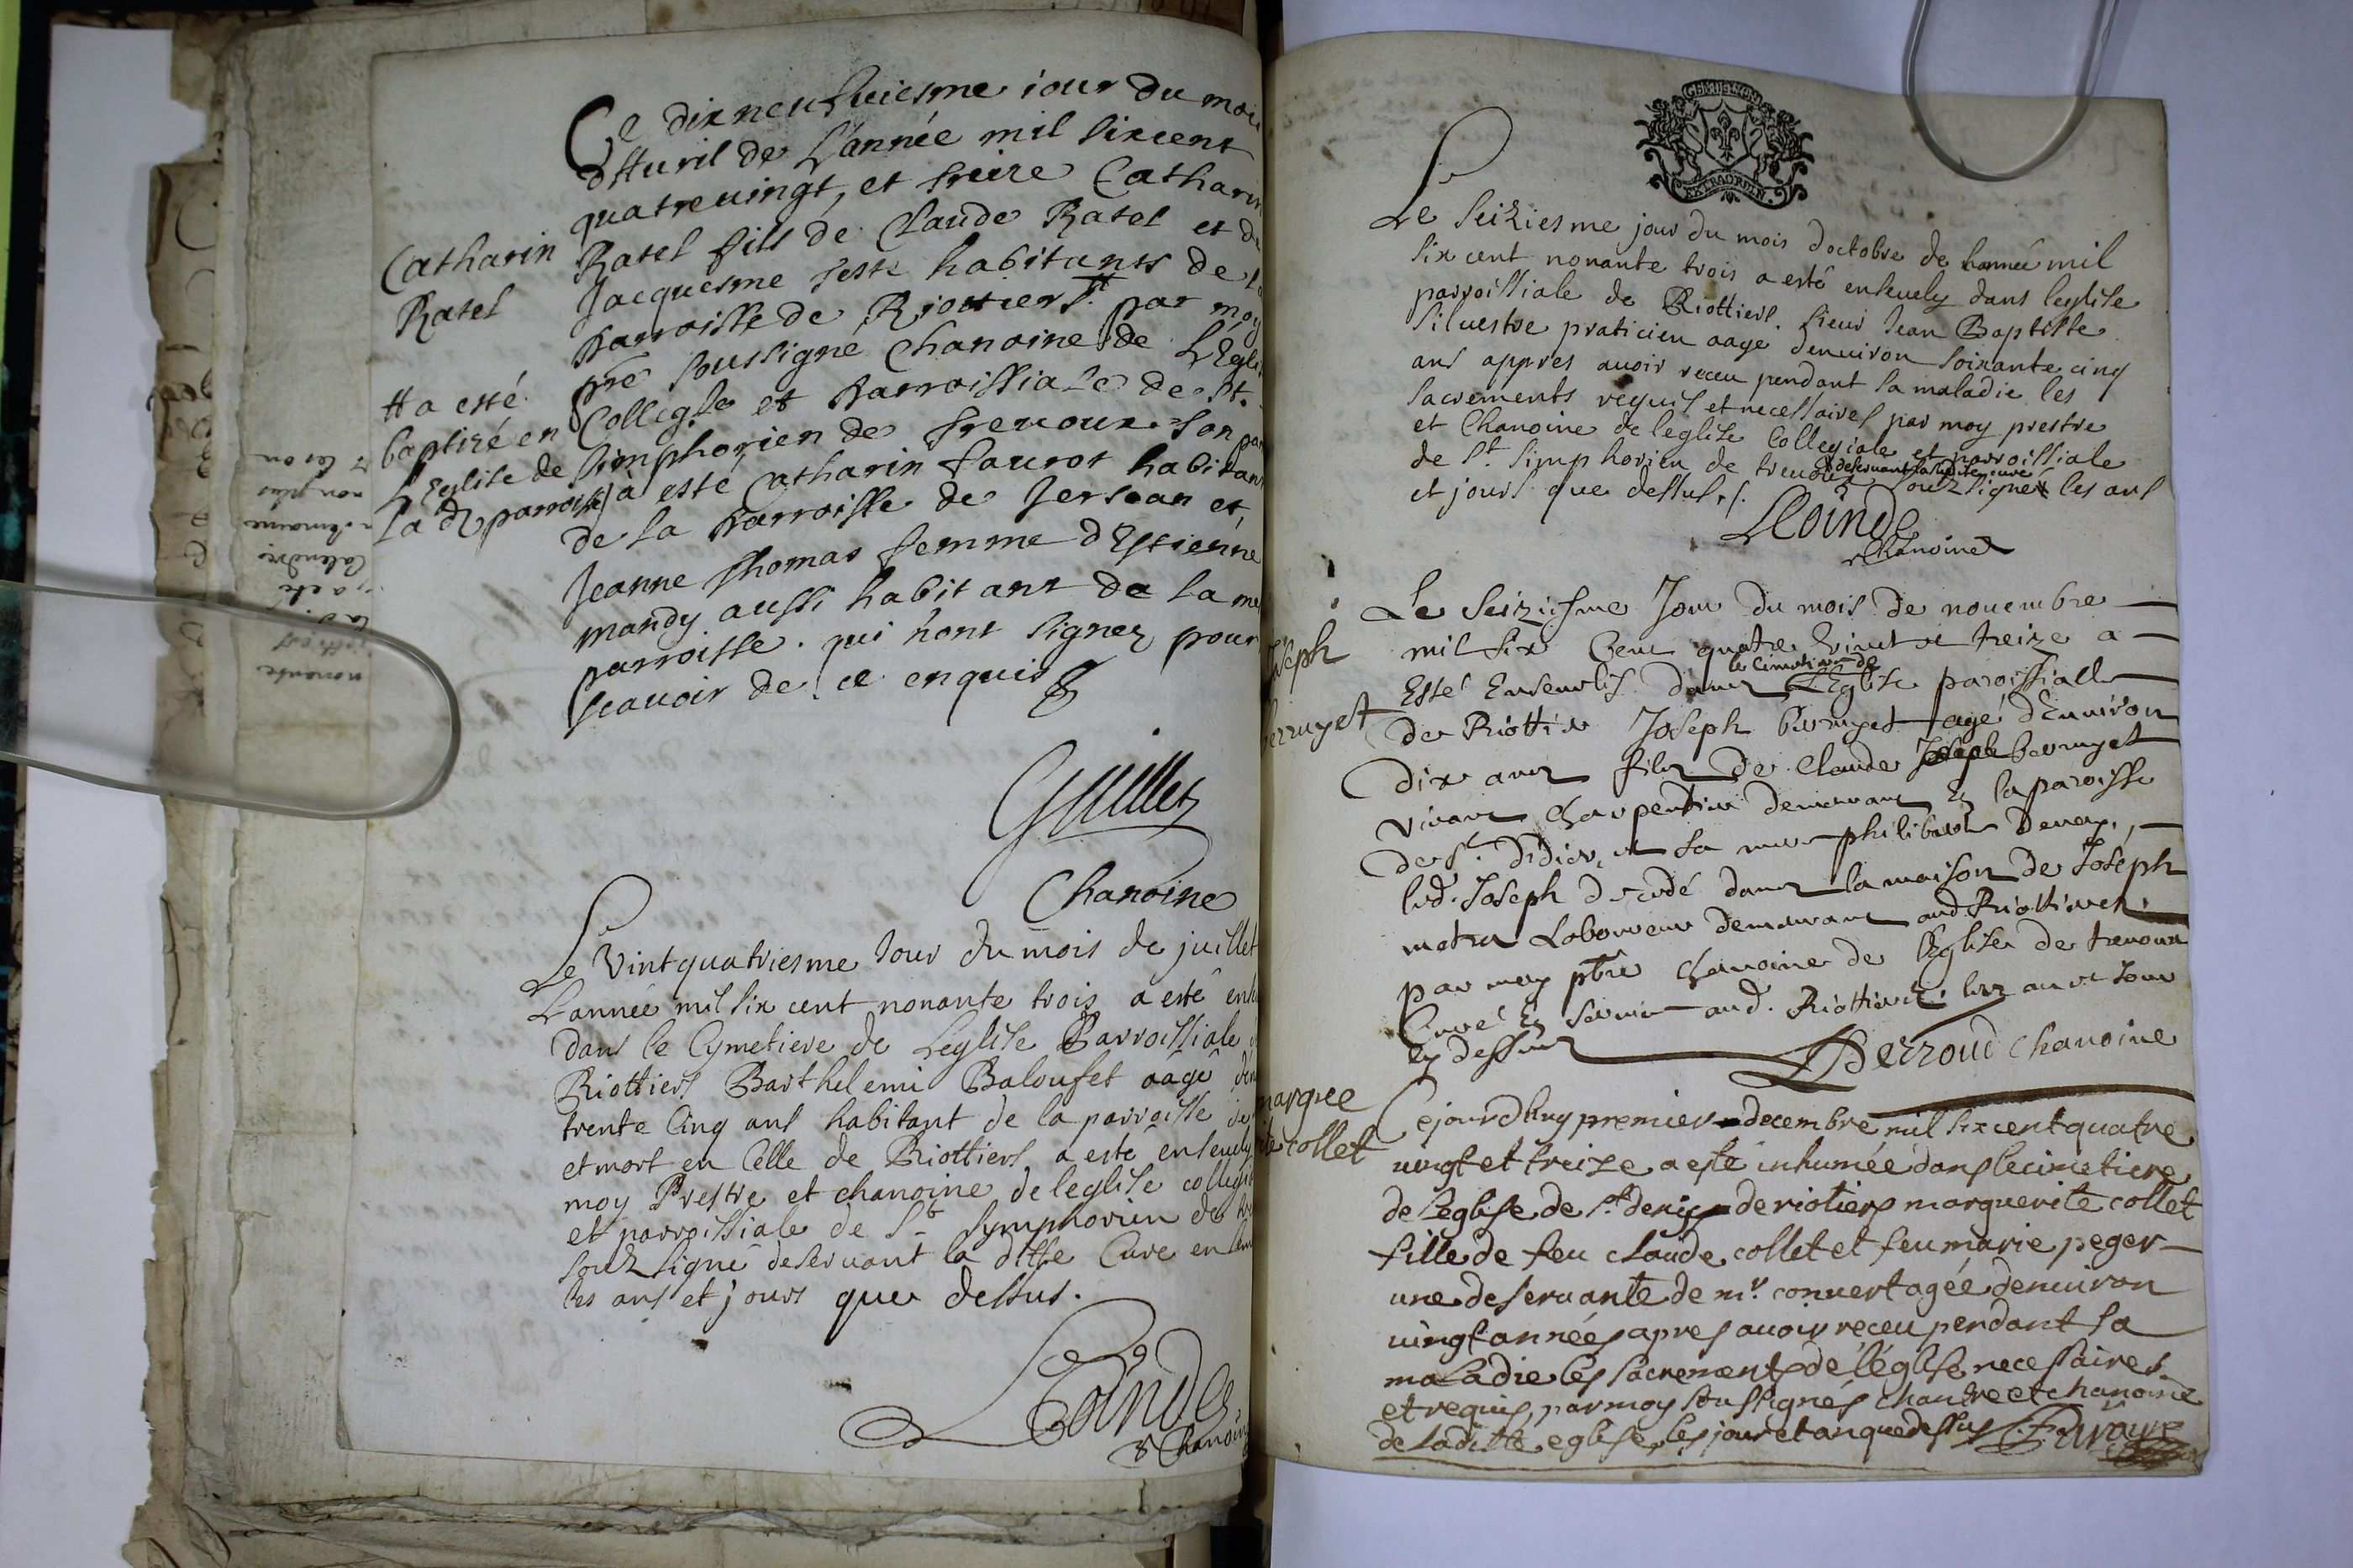 Ce dixneufuiesme iour du moi
dAuril de L'année mil sixcent
quatreuingt, et treize Catharin
Ratel fils de Claude Ratel et de
Jacquesme habitants de la
parroisse de Riottiers par moy
pre soussigné Chanoine de L'Eglis
Collegle et parroissiale de St.
Simphorien de Treuoux. Son par
à esté Catharin Faurot habitant
de la parroisse de Jersean et
Jeanne Thomas femme d'Estienne
mandy aussi habitant de la me
parroisse. qui n'ont signez pour
scauoir de ce enquis
Catharin
Ratel
# a esté
baptizé en
L'Eglise de
la de parroisse
Guillet
Chanoine
Le vintquatriesme Jour du mois de juillet
L'année mil six cent nonante trois a esté enh
dans le Cymetiere de Leglise Parroissiale
Riottiers Barthelemi Baloufet aagé den
trente Cinq ans habitant de la parroisse de
et mort en Celle de Riottiers a esté enseuely
moy Prestre et chanoine de leglise collegia
et parroissiale de St Symphorien de tre
soubsigné deseruant la ditte Cure en
les ans et jours que dessus.
Chanoine
GEN DE LYON
EXTRAORDIN.
Le seiziesme jour du mois d'octobre de lannée mil
six cent nonante trois a esté enseuely dans leglise
parroissiale de Riottiers. sieur Jean Baptiste
Siluestre praticien aage denuiron soixante cinq
ans appres auoir receu pendant sa maladie les
sacrements requis et necessaires par moy prestre
et Chanoine de leglise Collegiale et parroissiale
de St. Simphorien de treuoux deseruant laditte cure soubsigné les ans
et jours que dessus.
Chanoine
Joseph
berruyet
Le seiziesme Jour du mois de nouembre
mil six Cent quatre vint et treize a
Esté Enseuelis dans le Cimetiere de L'Eglise paroissialle
de Riottier Joseph berruyet agé d'Enuiron
dix ans fils de Claude Joseph berruyet
viuant Charpentier demeurant En la paroisse
de St. didier, et sa mere philiberte
led. Joseph decedé dans la maison de Joseph
Laboureur demeurant aud. Riottier.
par moy pbre Chanoine de l'Eglise de treuoux
Curé En seruice aud. Riottier. les an et Jour
cy dessus
Perroud chanoine
marguee
rite collet
Cejourdhuy premier decembre mil sixcent quatre
uingt et treize a esté inhumée dans le cimetiere
de l'eglise de st. denis de riotiers marguerite collet
fille de feu claude collet et feu marie peger
une deseruante de mr. conuert agée denuiron
uingt années apres auoir receu pendant sa
maladie les sacrements de l'églisse necessaires
et requis, par moy soussignés chantre et chanoine
de laditte eglise les jour et an que dessus